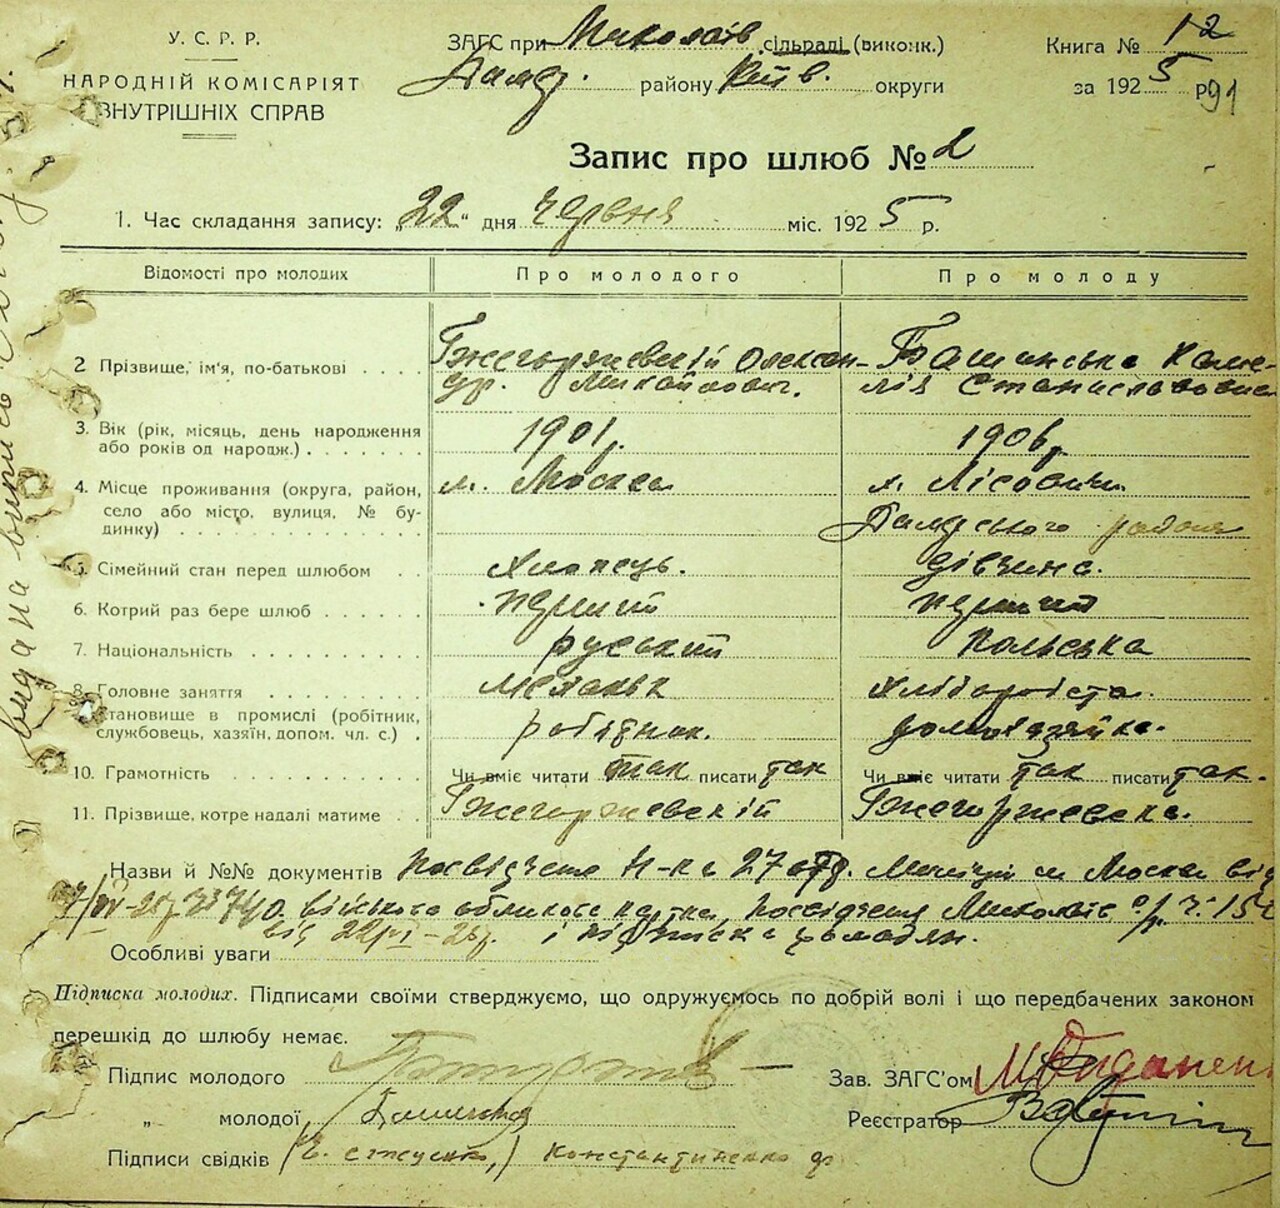 У. С. Р. Р.
НАРОДНІЙ КОМІСАРІЯТ
ВНУТРІШНІХ СПРАВ
ЗАГС при Миколаїв сільраді (виконк.)
району Київ. округи
Книга № 12
за 1925 р.
91
Запис про шлюб № 2
1. Час складання запису: „22" дня червня міс. 1925 р.
Відомості про молодих Про молодого Про молоду
2 Прізвище, ім'я, по-батькові . . . . Гжегоржевский Олексан- Башинська Каме-
др. Михайлович. лія Станиславовна
3. Вік (рік, місяць, день народження 1901 р. 1906 р.
або років од народж.) . . . . . . .
4. Місце проживання (округа, район, м. Москва Лісовичи
село або місто, вулиця, № бу- району
динку) . . . . . . . . . . . . .
5. Сімейний стан перед шлюбом . . Хлопець. дівчина.
6. Котрий раз бере шлюб . . . . . перший перший
7. Національність . . . . . . . . . руський польська
8. Головне заняття . . . . . . . . механик
становище в промислі (робітник, робітник. домохазяйка.
службовець, хазяїн, допом. чл. с.) .
10. Грамотність . . . . . . . . . . Чи вміє читати так писати так Чи вміє читати так писати так.
11. Прізвище, котре надалі матиме . . Гжегоржевский Гжегоржевска.
Назви й №№ документів Посвідчення Н-ка 27 отд. Міліції м Москви від
військова обликова картка, Посвідчення Миколаїв с/р. ч. 152
від 22/VI-25 р. і підписка громадян.
Особливі уваги
Підписка молодих. Підписами своїми стверджуємо, що одружуємось по добрій волі і що передбачених законом
перешкід до шлюбу немає.
Підпис молодого
Зав. ЗАГС'ом
„ молодої Башинска
Реєстратор
Підписи свідків Константиненко
видана выпись